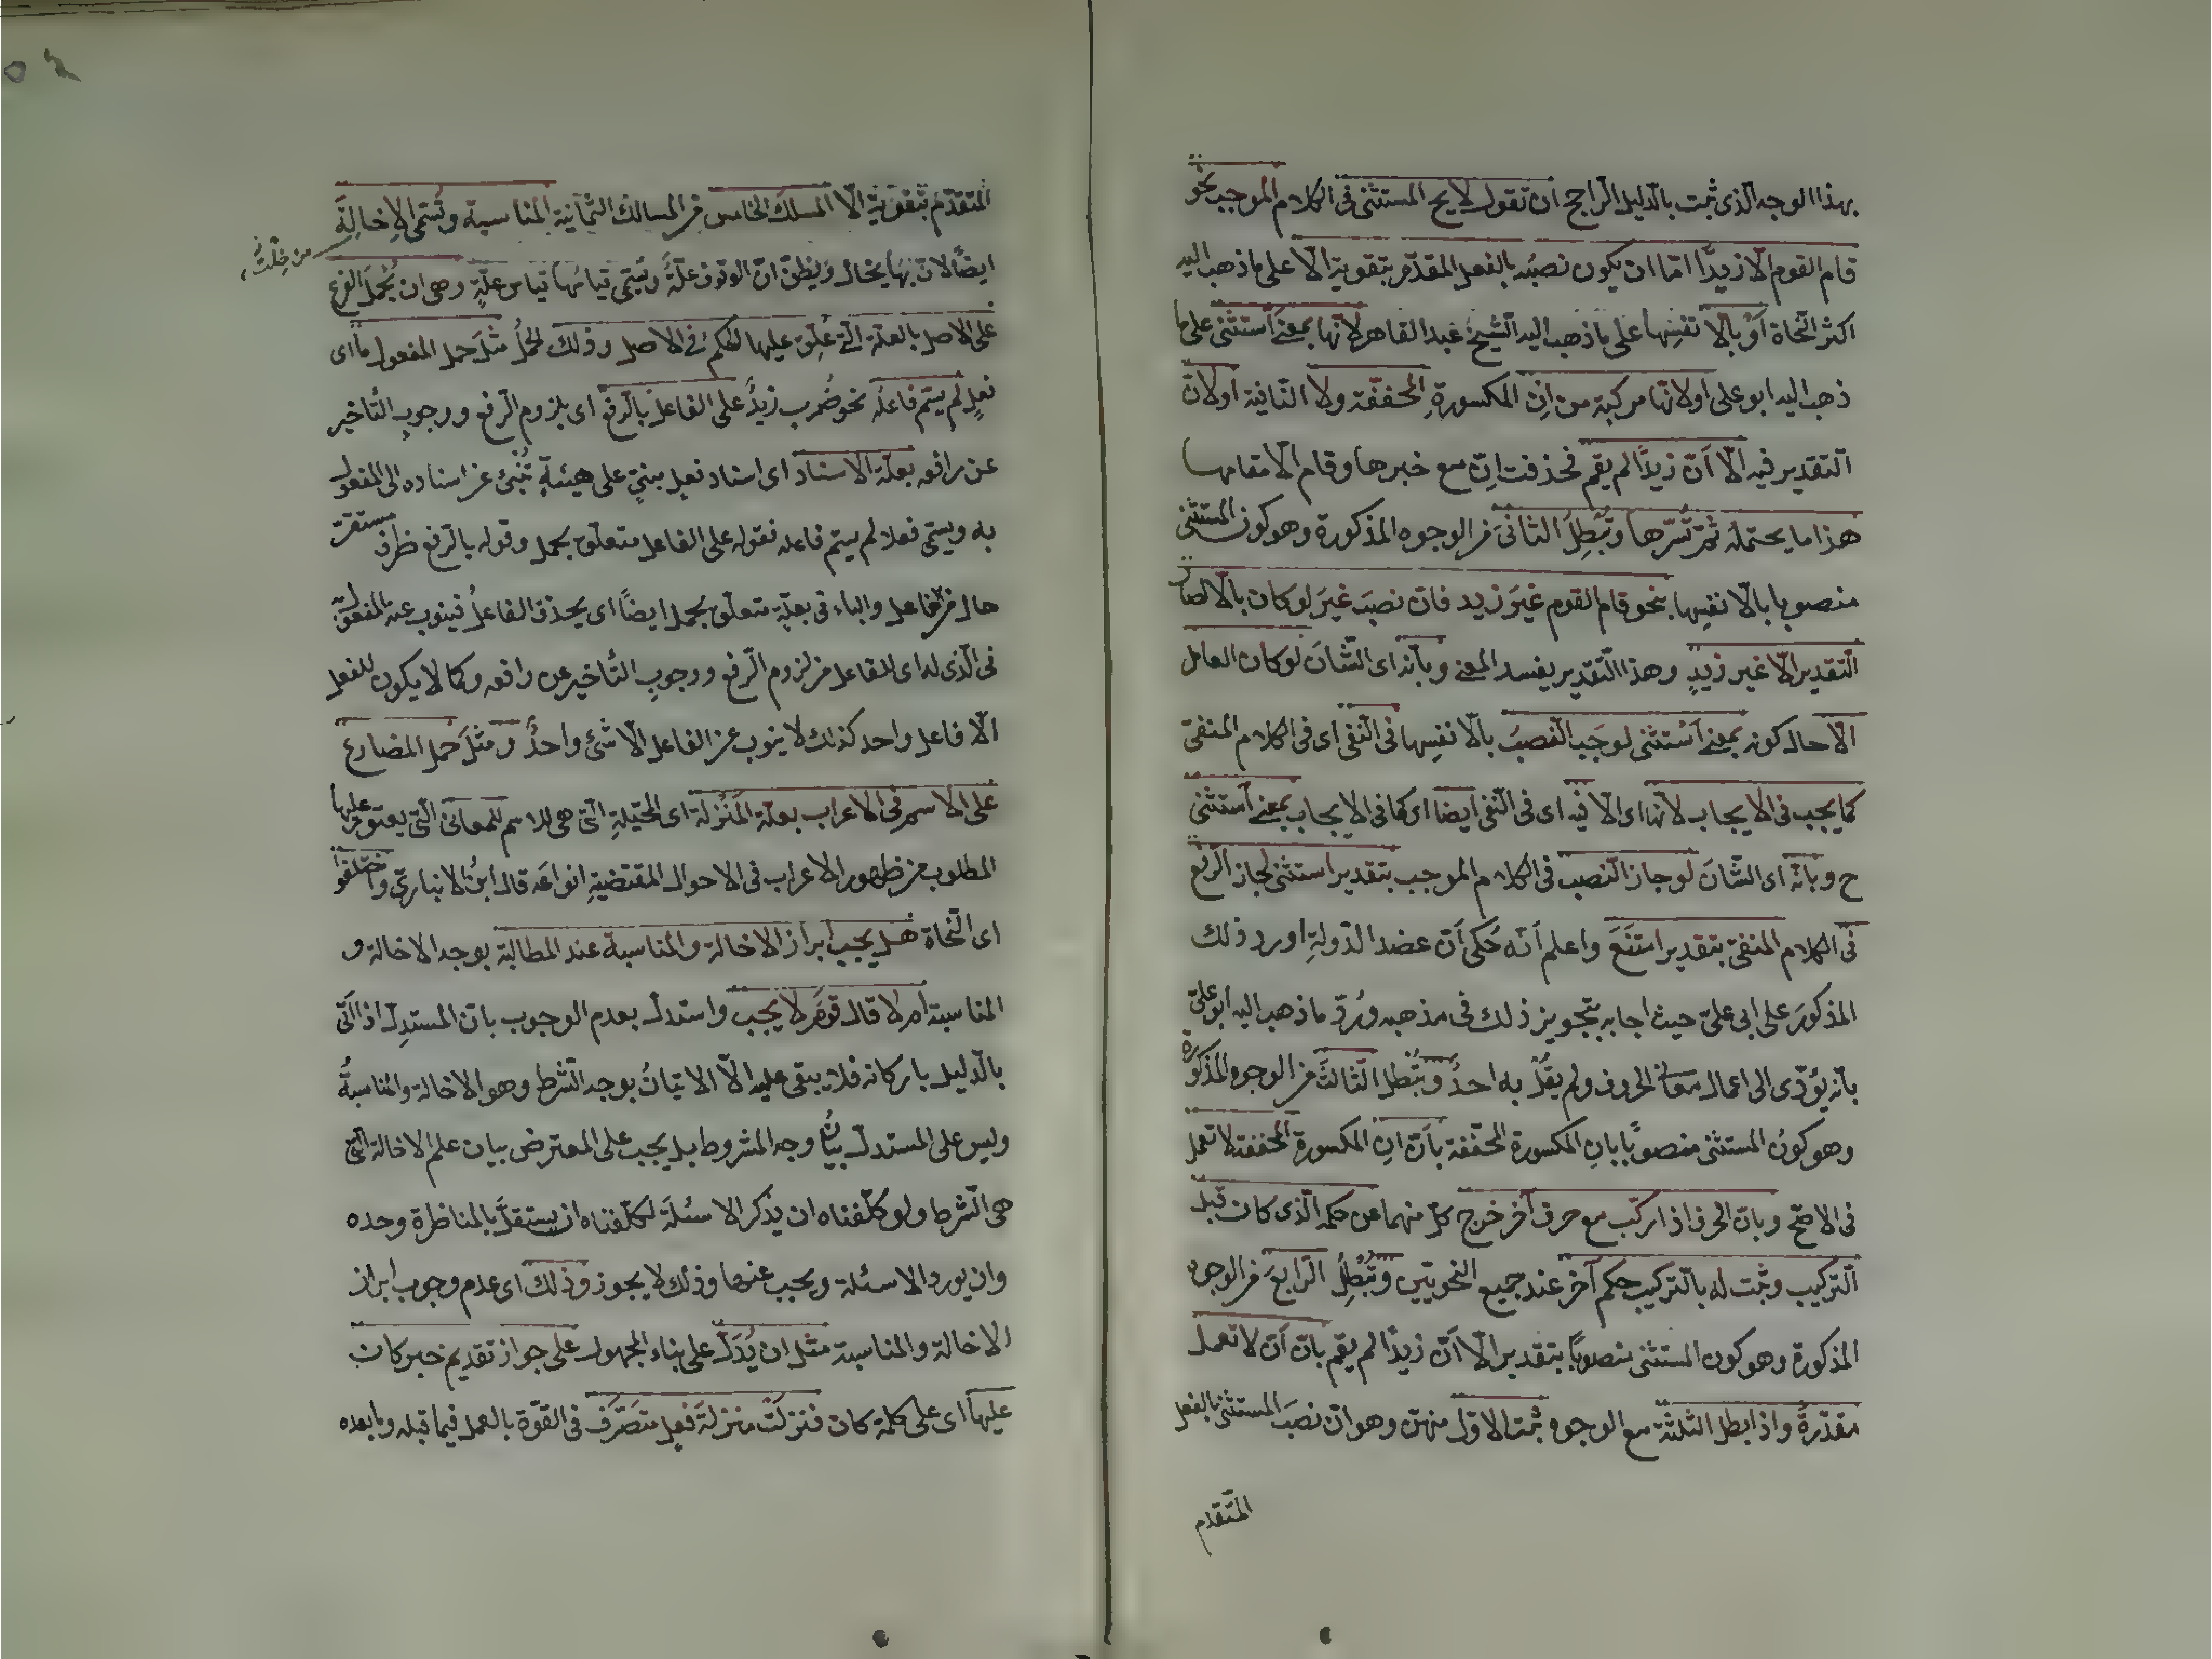 بهذا الوجه الذى ثبت بالدليل الراجح ان تقول لا يح المستثنى فى الكلام الموجب نحو
قام القوم الّا زيدًا امّا ان يكون نصبُه بالفعل المقدّم بتقوية الّا على ما ذهب اليه
اكثر النحاة أوْ بالّا نفسِها على ما ذهب اليه الشيخ عبد القاهر لانّها بمعنى أستثنى على ما
ذهب اليه ابو على او لانّها مركبة من اِنِ المكسورةِ المخفّفة ولا النّافية او لانّ
التقدير فيه الّا اَنّ زيدًا لم يقم فحذفت اِنّ مع خبرها وقام الّا مقامها
هذا ما يحتمله ثمّ تسّرها وتُبْطِلُ الثانىَ من الوجوه المذكورة وهو كون المستثنى
منصوبا بالّا نفسِها بنحو قام القوم غيرَ زيد فانّ نصبَ غيرَ لو كان بالّا لصار
التّقدير الّا غير زيدٍ وهذا التّقدير يفسد المعنى وبأنّه اى الشّانَ لو كان العامل
الّا حال كونه بمعنى اَسْتثنى لوجَب النّصبُ بالّا نفسِها فى النّفى اى فى الكلام المنفىّ
كما يجب فى الايجاب لانّها اى الّا فيه اى فى النّفى ايضا اى كما فى الايجاب بمعنى اَستثنى
ح وبانّه اى الشّانَ لو جاز النّصب فى الكلام الموجب بتقدير استثنى لجاز الرّفع
فى الكلام المنفىّ بتقدير امتَنَعَ واعلم اَنّه حُكى اَنّ عضد الدّولةِ اورد ذلك
المذكورَ على ابى علىّ حيث اجابه بتجويز ذلك فى مذهبه ورُدّ ما ذهب اليه ابو علىّ
بأنّه يُؤدّى الى اعمال معانى الحروف ولم يقُلْ به احدٌ وتُبْطِل الثّالثَ من الوجوه المذكورة
وهو كونُ المستثنى منصوبًا باِنِ المكسورة المخفّفة بأنّ اِنِ المكسورةَ المخففة لا تعمل
فى الاصحّ وبانّ الحرف اذا ركّب مع حرف آخر خرج كلّ منهما عن حكمه الّذى كان قبل
التّركيب وثبت له بالتّركيب حكم آخر عند جميع النّحويّين وتُبْطِلُ الرّابعَ من الوجوه
المذكورة وهو كون المستثنى منصوبًا بتقدير الّا اَنّ زيدًا لم يقم بانّ اَنّ لا تعمل
مقدّرةً واذا ابطل الثلثة مع الوجوه ثبت الاوّل منهنّ وهو انّ نصبَ المستثنى بالفعل
المتقدم
المتقدّم بتقوية الّا المسلك الخامس من المسالك الثمانية المناسبة وتُسمّى الاِخالةَ
من خِلتُ
ايضًا لانّ بها يخال ويُظنّ انّ الوصف علّةٌ ويُسمّى قياسُها قياسَ علّةٍ وهى ان يُحْمل الفرع
على الاصل بالعلّة الّتى عُلِّق عليها الحكمُ فى الاصل وذلك الحملُ مثلَ حمل المفعول ما اى
فعلٍ لم يسّم فاعلُه نحو ضُرب زيدٌ على الفاعل بالرّفع اى بلزوم الرّفع ووجوبِ التأخير
عن رافعه بعلّة الاسناد اى اسناد فعلٍ مبنىٍ على هيئةٍ تُنبئ عن اسناده الى المفعول
به ويسمّى فعلا لم يسّم فاعله فقوله على الفاعل متعلّق بحمل وقوله بالرّفع ظرف مستقرّ
حال من الفاعل والباء فى بعلّة متعلّق بحمل ايضًا اى يحذف الفاعلُ فينوب عنه المفعول به
فى الّذى له اى للفاعل من لزوم الرّفع ووجوبِ التّأخير عن رافعه وكما لا يكون للفعل
الّا فاعل واحد كذلك لا ينوب عن الفاعل الّا شئ واحدٌ ومثلَ حمل المضارع
على الاسم فى الاعراب بعلّة المَنْزلة اى المخيلةِ الّتى هى للاسم للمعانى الّتى يعتور عليها
المطلوب من ظهور الاعراب فى الاحوال المقتضيةِ انواعَه قال ابنُ الانبارىّ واختلفوا
اى النّحاة هل يجب ابراز الاخالة والمناسبة عند المطالبة بوجه الاخالة و
المناسبة اَم لا قال قومٌ لا يجب واستدلّ بعدم الوجوب بانّ المستدِلّ اذا اَتى
بالدّليل باركانه فلا يبقى عليه الّا الاتيانُ بوجه الشّرط وهو الاخالة والمناسبةُ
وليس على المستدلّ بيانُ وجه المشروط بل يجب على المعترض بيان علم الاخالة الّتى
هى الشّرط ولو كلّفناه ان يذكر الاسئلةَ لكلّفناه ان يستقلَّ بالمناظرة وحده
وان يورد الاسئلة ويجب عنها وذلك لا يجوز وذلك اى عدم وجوب ابراز
الاخالة والمناسبة مثل ان يُدَلّ على بناء المجهول على جواز تقديم خبر كان
عليها اى على كلمة كان فنزلَتْ منزلةَ فعلٍ متصَرِّف فى القوّة بالعمل فيما قبله وما بعده